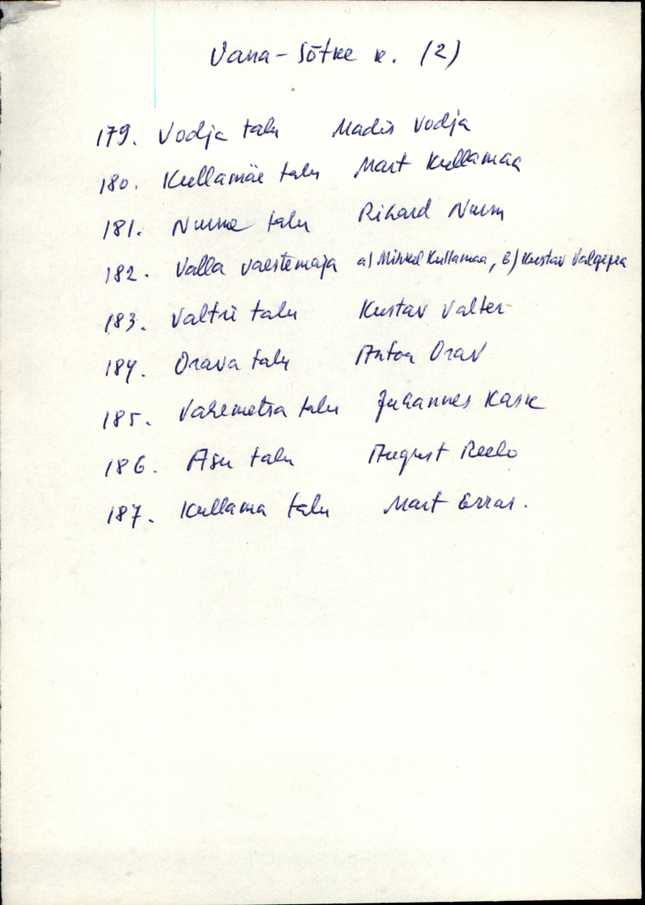 Vana-Sõtke k. (2)
179. Vodja talu Madis Vodja
180. Kullamäe talu Mart Kullamaa
181. Nurme talu Rihard Nurm
182. Valla vaestemaja a) Mihkel Kullamaa, b) Kustav Valgepea
183. Valtri talu Kustav Valter
184. Orava talu Anton Orav
185. Vahemetsa talu Juhannes Kask
186. Asu talu August Reelo
187. Kullama talu Mart Erras.